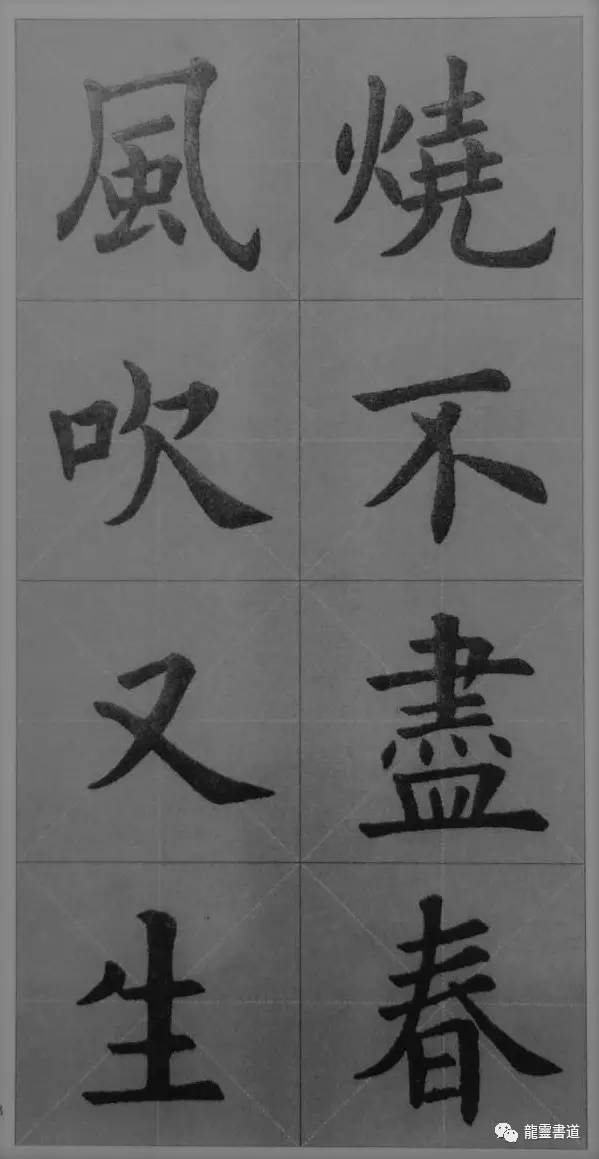 燒不盡春
風吹又生
龍靈書道